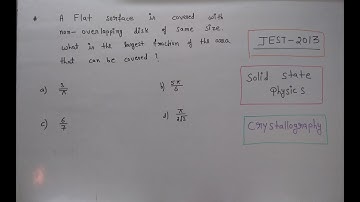 * A Flat surface is covered with
non-overlapping disk of same size.
what is the largest fraction of the area
that can be covered ?
a) 3/π
b) 5π/6
c) 6/7
d) π/2√3
JEST-2013
Solid state
Physics
Crystallography